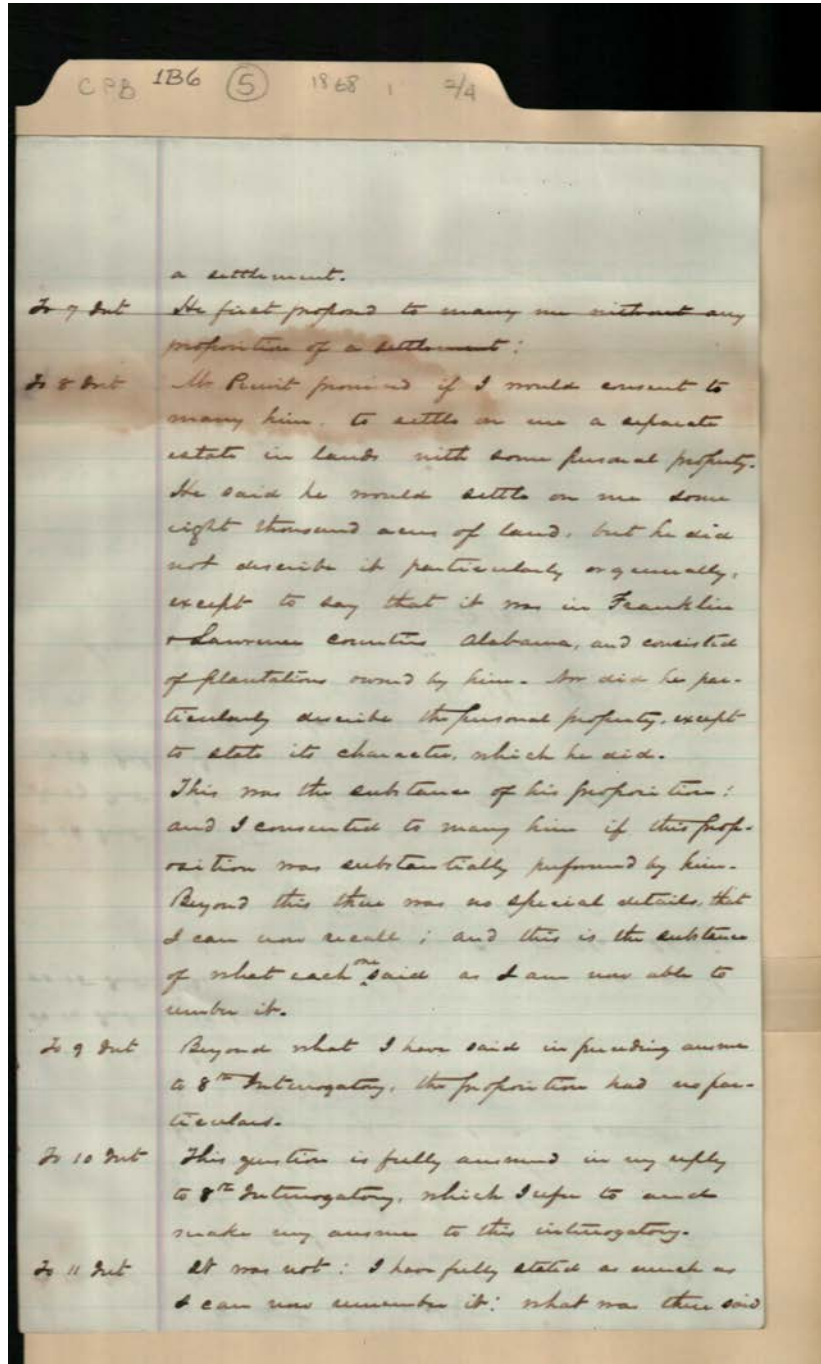 CPB 1B6 5 1868 1 2/4
a settlement.
To 7 Int He first proposed to marry me without any
proposition of a settlement:
To 8 Int Mr Pruit promised if I would consent to
marry him, to settle on me a separate
estate in lands with some personal property.
He said he would settle on me some
eight thousand acres of land, but he did
not describe it particularly or generally,
except to say that it was in Franklin
& Lawrence counties Alabama, and consisted
of plantations owned by him. Nor did he par-
ticularly describe the personal property, except
to state its character, which he did.
This was the substance of his proposition:
and I consented to marry him if this prop-
osition was substantially performed by him.
Beyond this there was no special details, that
I can now recall; and this is the substance
of what each one said as I am now able to
member it.
To 9 Int Beyond what I have said in preceding answer
to 8th Interrogatory, the proposition had no par-
ticulars.
To 10 Int This question is fully answered in my reply
to 8th Interrogatory, which I refer to and
make my answer to this interrogatory.
To 11 Int It was not: I have fully stated as much as
I can now remember it: what was then said